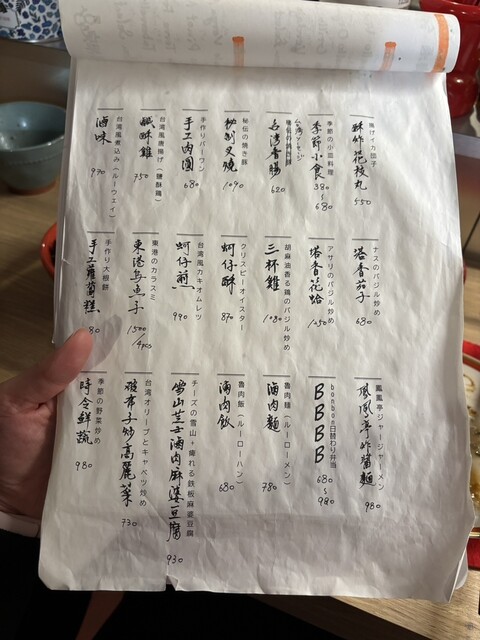 揚げイカ団子
酥炸花枝丸
550
季節の小皿料理
季節小食
380
〜
680
台湾ソーセージ
台湾香腸
620
秘伝の焼き豚
秘制叉燒
1090
手作りバーワン
手工肉圓
680
台湾風唐揚げ（鹽酥鶏）
鹹酥雞
750
台湾風煮込み（ルーウェイ）
滷味
970
ナスのバジル炒め
塔香茄子
680
アサリのバジル炒め
塔香花蛤
1050
胡麻油香る鶏のバジル炒め
三杯雞
1080
クリスピーオイスター
蚵仔酥
870
台湾風カキオムレツ
蚵仔煎
990
東港のカラスミ
東港烏魚子
1500
/4pcs
手作り大根餅
手工蘿蔔糕
80
鳳凰亭ジャージャーメン
鳳凰亭炸醬麵
980
bonbon日替わり弁当
BBBB
680
〜
980
魯肉麺（ルーローメン）
滷肉麵
780
魯肉飯（ルーローハン）
滷肉飯
680
チーズの雪山＋痺れる鉄板麻婆豆腐
雪山芝士滷肉麻婆豆腐
930
台湾オリーブとキャベツ炒め
破布子炒高麗菜
730
季節の野菜炒め
時令鮮蔬
980